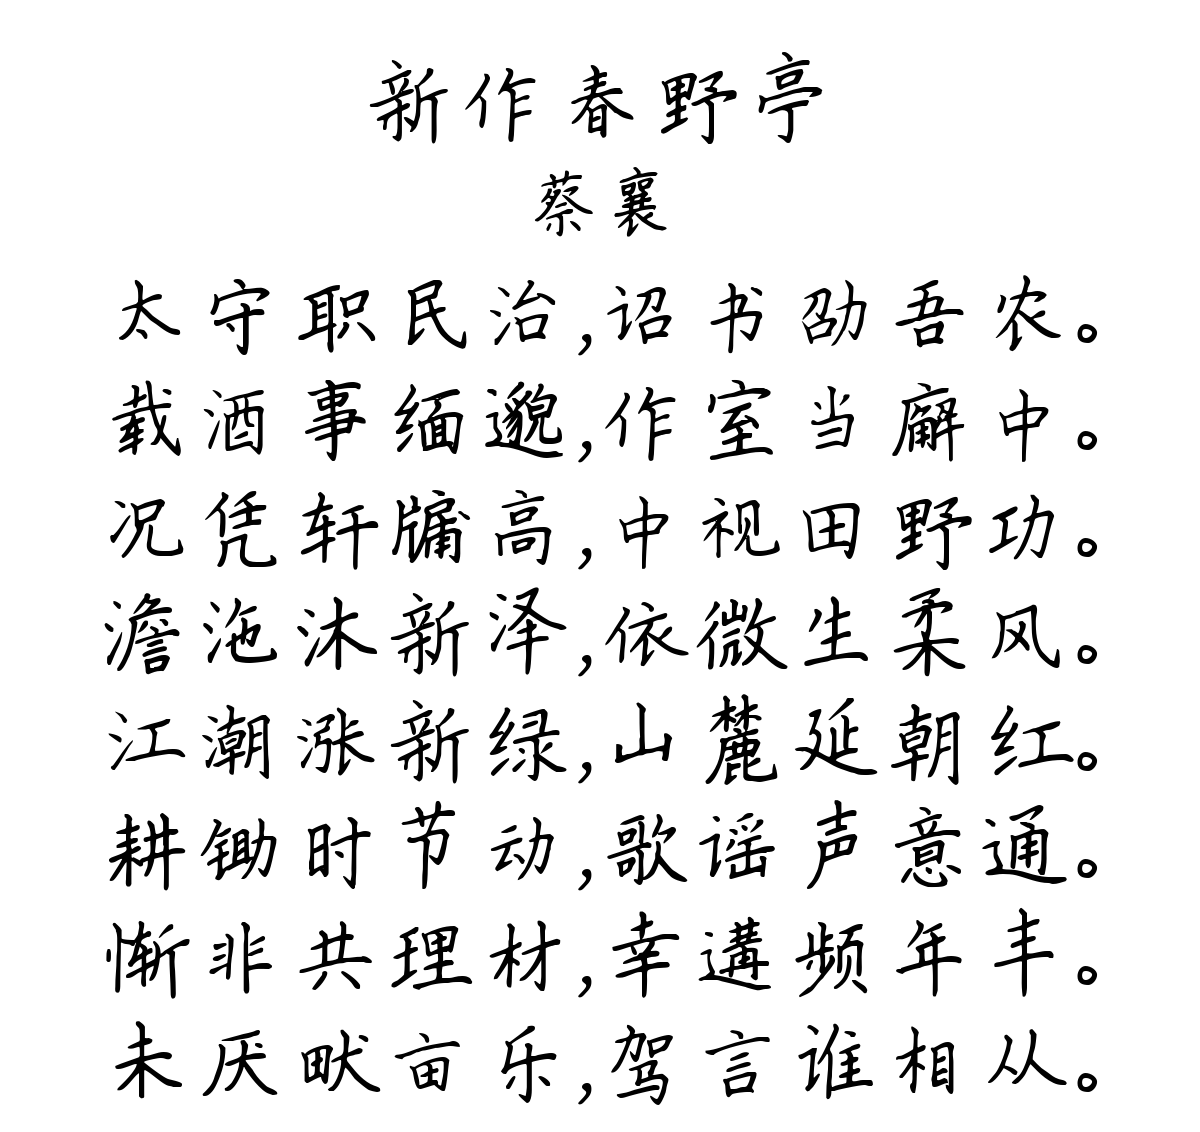 新作春野亭
蔡襄
太守职民治,诏书劭吾农。
载酒事缅邈,作室当廨中。
况凭轩牖高,中视田野功。
澹沲沐新泽,依微生柔风。
江潮涨新绿,山麓延朝红。
耕锄时节动,歌谣声意通。
惭非共理材,幸遘频年丰。
未厌畎亩乐,驾言谁相从。